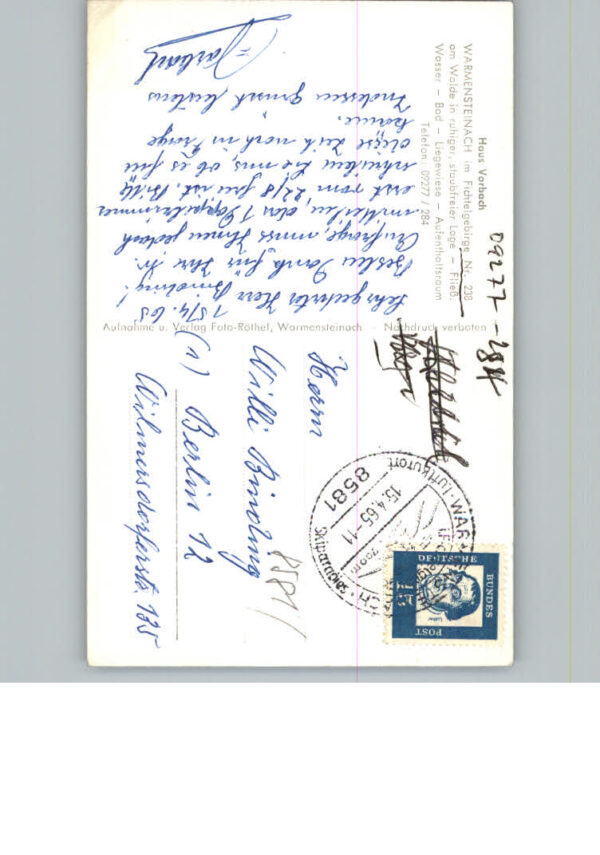 Haus Vorbach
WARMENSTEINACH im Fichtelgebirge Nr. 238
am Walde in ruhiger, staubfreier Lage – Fließ.
Wasser – Bad – Liegewiese – Aufenthaltsraum
Telefon: 09277 / 284
09277 - 284
15/4. 65
Sehr geehrter Herr Binding!
Besten Dank für Ihre
Anfrage, muss Ihnen jedoch
mitteilen, dass 1 Doppelzimmer
erst vom 22/8 frei ist. Bitte
schreiben Sie uns, ob es für
diese Zeit noch in Frage
käme.
Indessen grüsst bestens
Vorbach
Aufnahme u. Verlag Foto-Röthel, Warmensteinach – Nachdruck verboten
Herrn
Willi Binding
(1) Berlin 12
Wilmersdorferstr. 125
8581/
8581
15.4.65-11
Luftkurort
Skiparadies
DEUTSCHE
BUNDES
POST
15
Luther